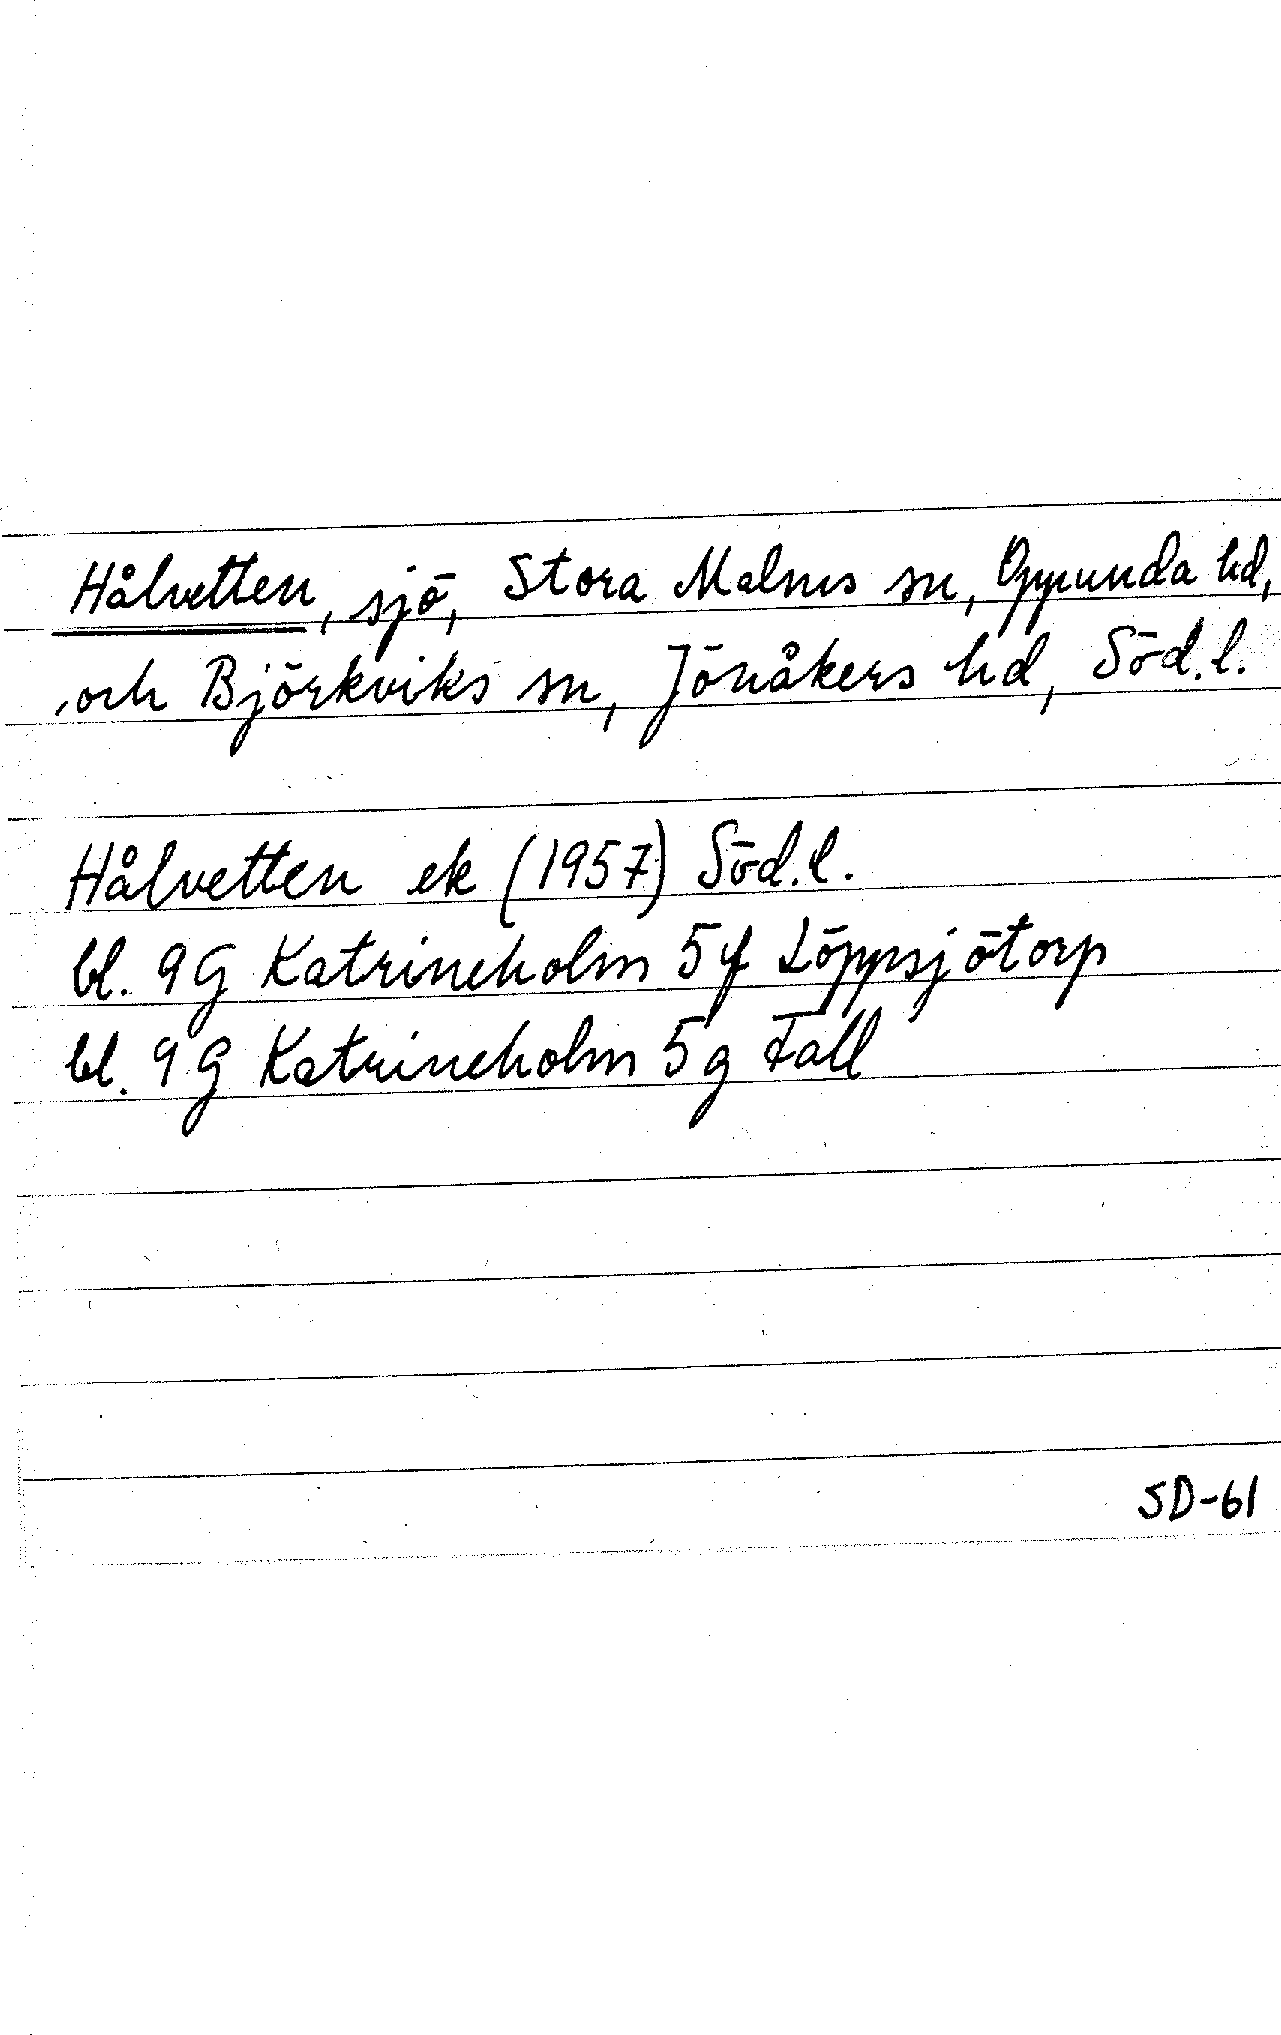 Hålvetten, sjö, Stora Malms sn, Oppunda hd,
och Björkviks sn, Jönåkers hd, Söd.l.
Hålvetten ek (1957) Söd.l.
bl. 9G Katrineholm 5f Löppsjötorp
bl. 9G Katrineholm 5g Fall
SD-61